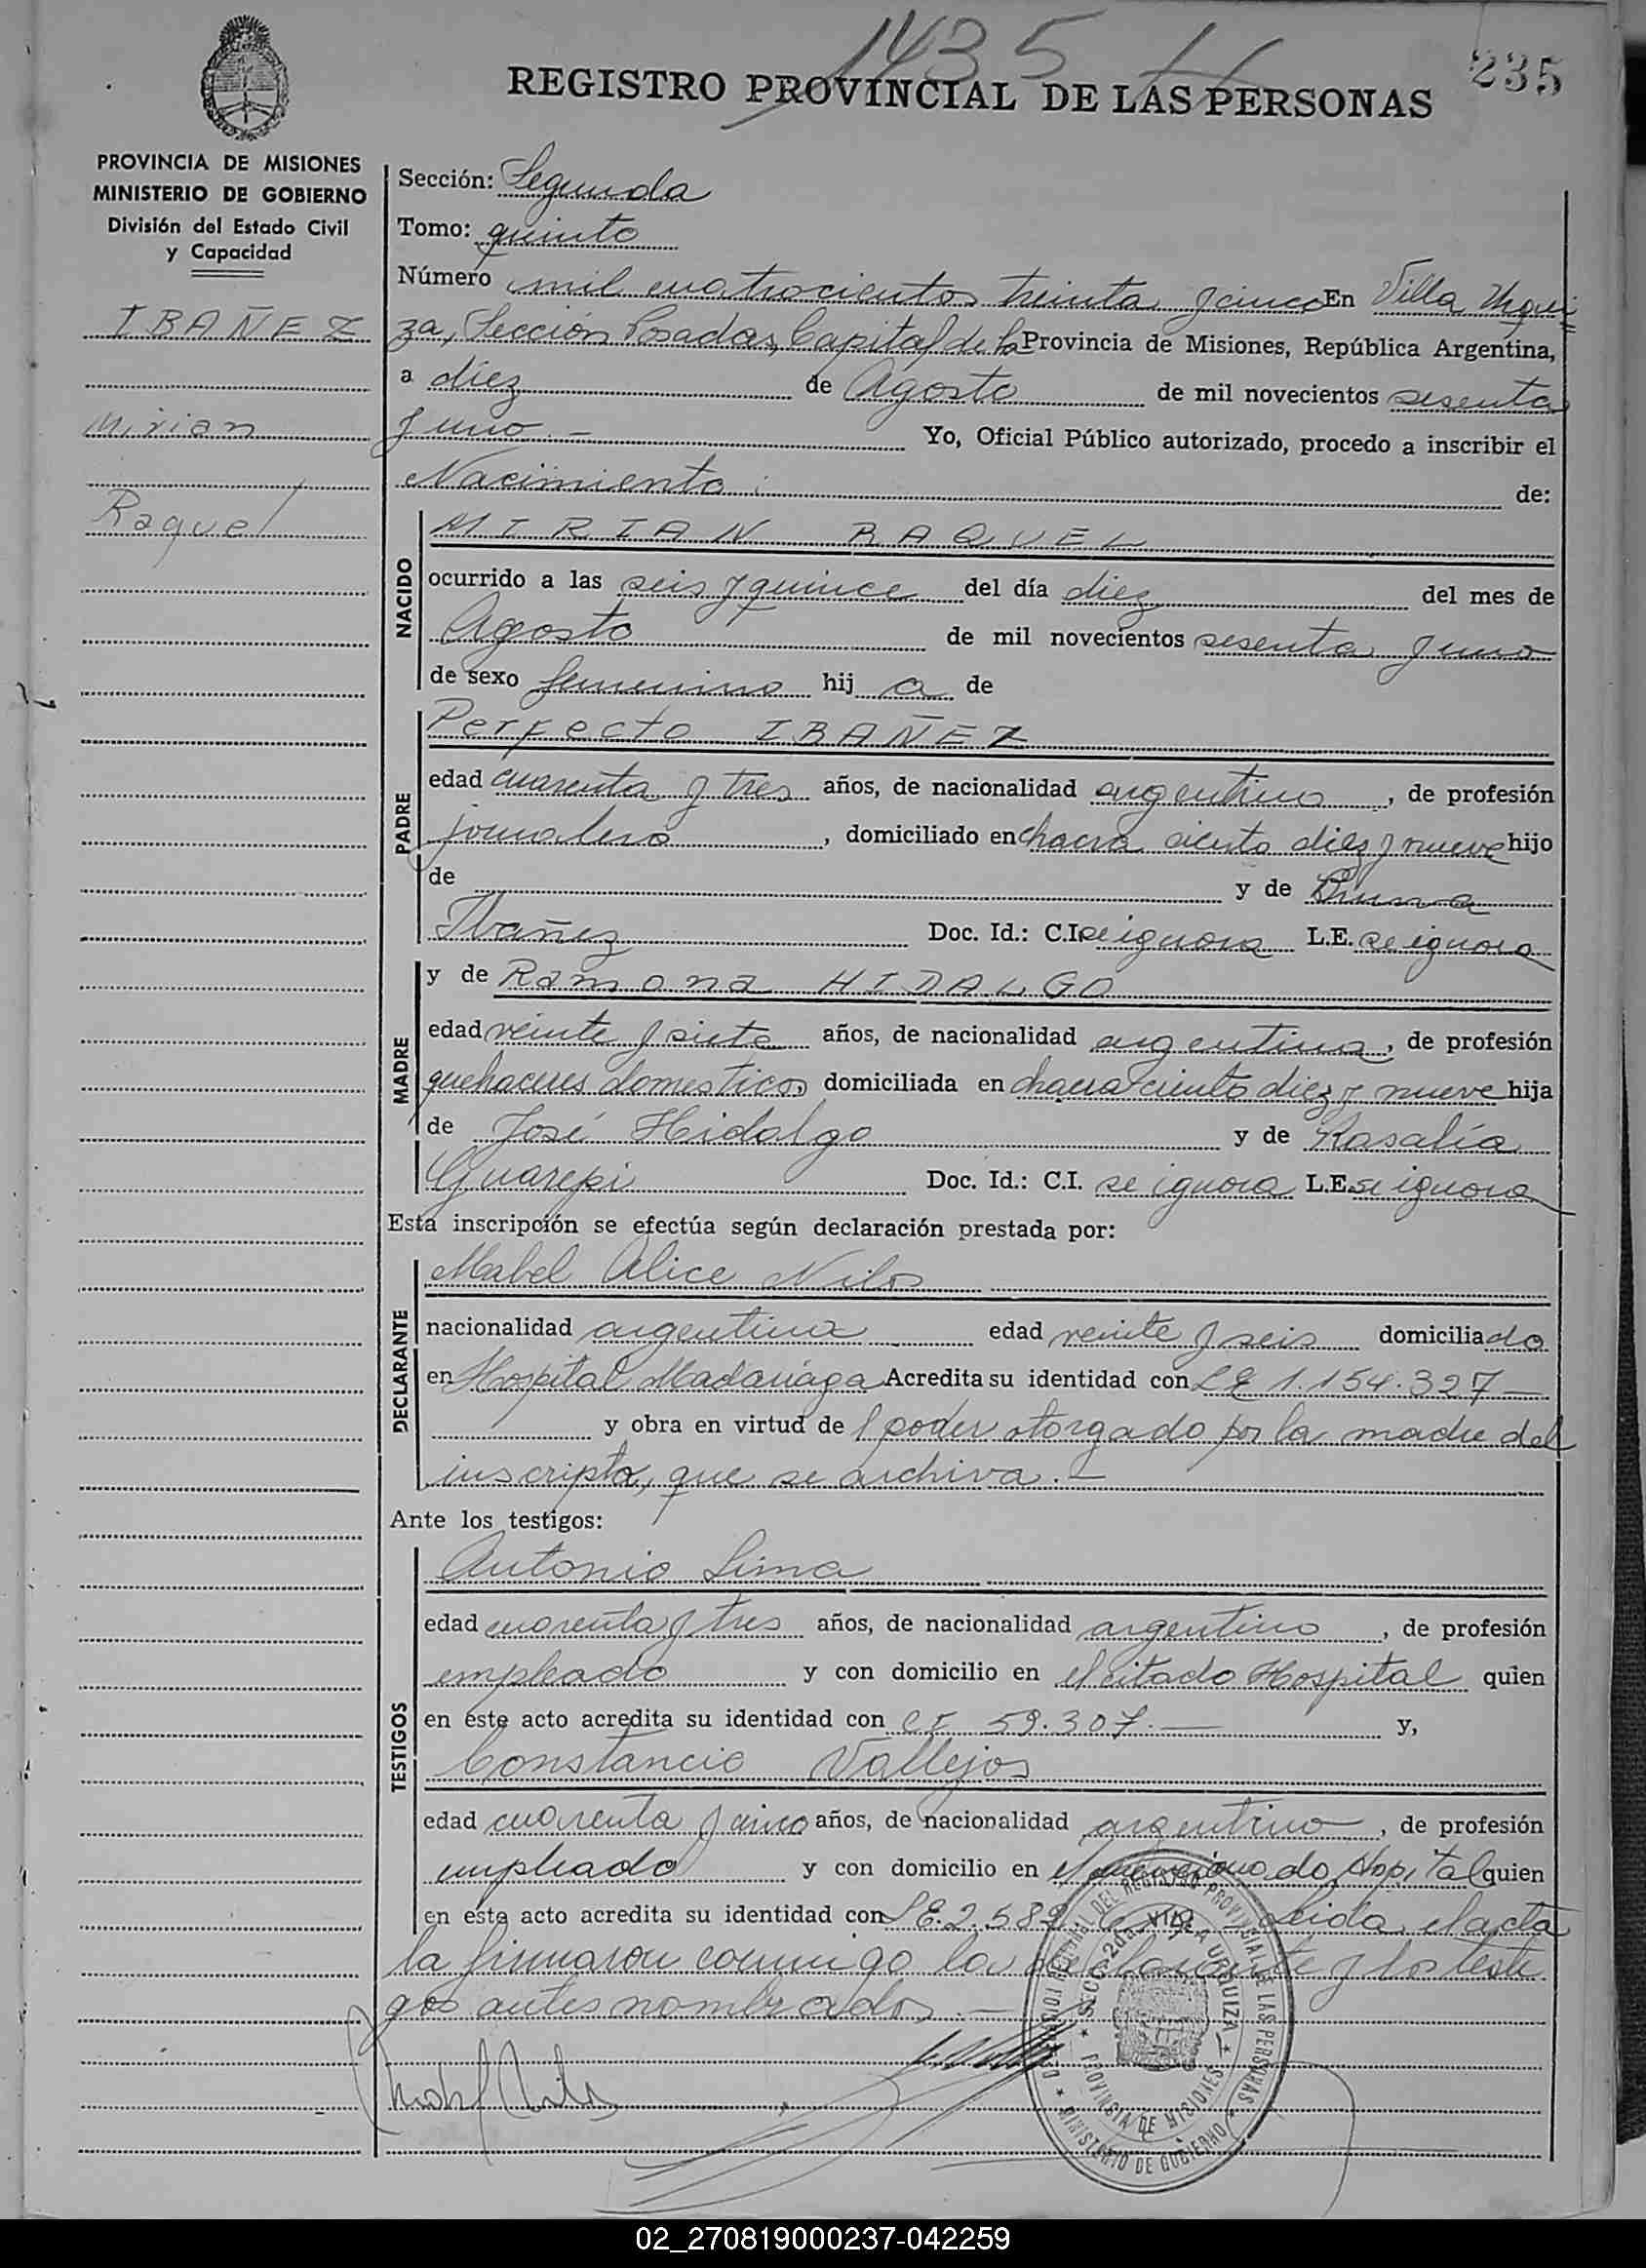 1435
235
REGISTRO PROVINCIAL DE LAS PERSONAS
PROVINCIA DE MISIONES
MINISTERIO DE GOBIERNO
División del Estado Civil
y Capacidad
IBAÑEZ
Mirian
Raquel
Sección: Segunda
Tomo: quinto
Número mil cuatrocientos treinta y cinco En Villa Urqui
za, Sección Posadas, Capital de la Provincia de Misiones, República Argentina,
a diez de Agosto de mil novecientos sesenta
y uno.- Yo, Oficial Público autorizado, procedo a inscribir el
Nacimiento de:
NACIDO
MIRIAN RAQUEL
ocurrido a las seis y quince del día diez del mes de
Agosto de mil novecientos sesenta y uno
de sexo femenino hij a de
PADRE
Perfecto IBAÑEZ
edad cuarenta y tres años, de nacionalidad argentina, de profesión
jornalero, domiciliado en chacra ciento diez y nueve hijo
de y de
Ibañez Doc. Id.: C.I. se ignora L.E. se ignora
MADRE
y de Ramona HIDALGO
edad veinte y siete años, de nacionalidad argentina, de profesión
quehaceres domesticos domiciliada en chacra ciento diez y nueve hija
de José Hidalgo y de Rosalía
Guarepi Doc. Id.: C.I. se ignora L.E. se ignora
Esta inscripción se efectúa según declaración prestada por:
DECLARANTE
Mabel Alice Nilos
nacionalidad argentina edad veinte y seis domiciliado
en Hospital Madariaga Acredita su identidad con LE 1.154.327 —
y obra en virtud de 1 poder otorgado por la madre del
inscripta, que se archiva.-
Ante los testigos:
TESTIGOS
Antonio Lima
edad cuarenta y tres años, de nacionalidad argentino, de profesión
empleado y con domicilio en el citado Hospital quien
en este acto acredita su identidad con CI 59.307.— y,
Constancio Vallejos
edad cuarenta y cinco años, de nacionalidad argentino, de profesión
empleado y con domicilio en el mencionado Hopital quien
en este acto acredita su identidad con LE. 2.589. Leida el acta
la firmaron conmigo la declarante y los testi
gos antes nombrados.—
DEL REGISTRO PROVINCIAL DE LAS PERSONAS
SECC. 2da. VILLA URQUIZA
PROVINCIA DE MISIONES
MINISTERIO DE GOBIERNO
02_270819000237-042259